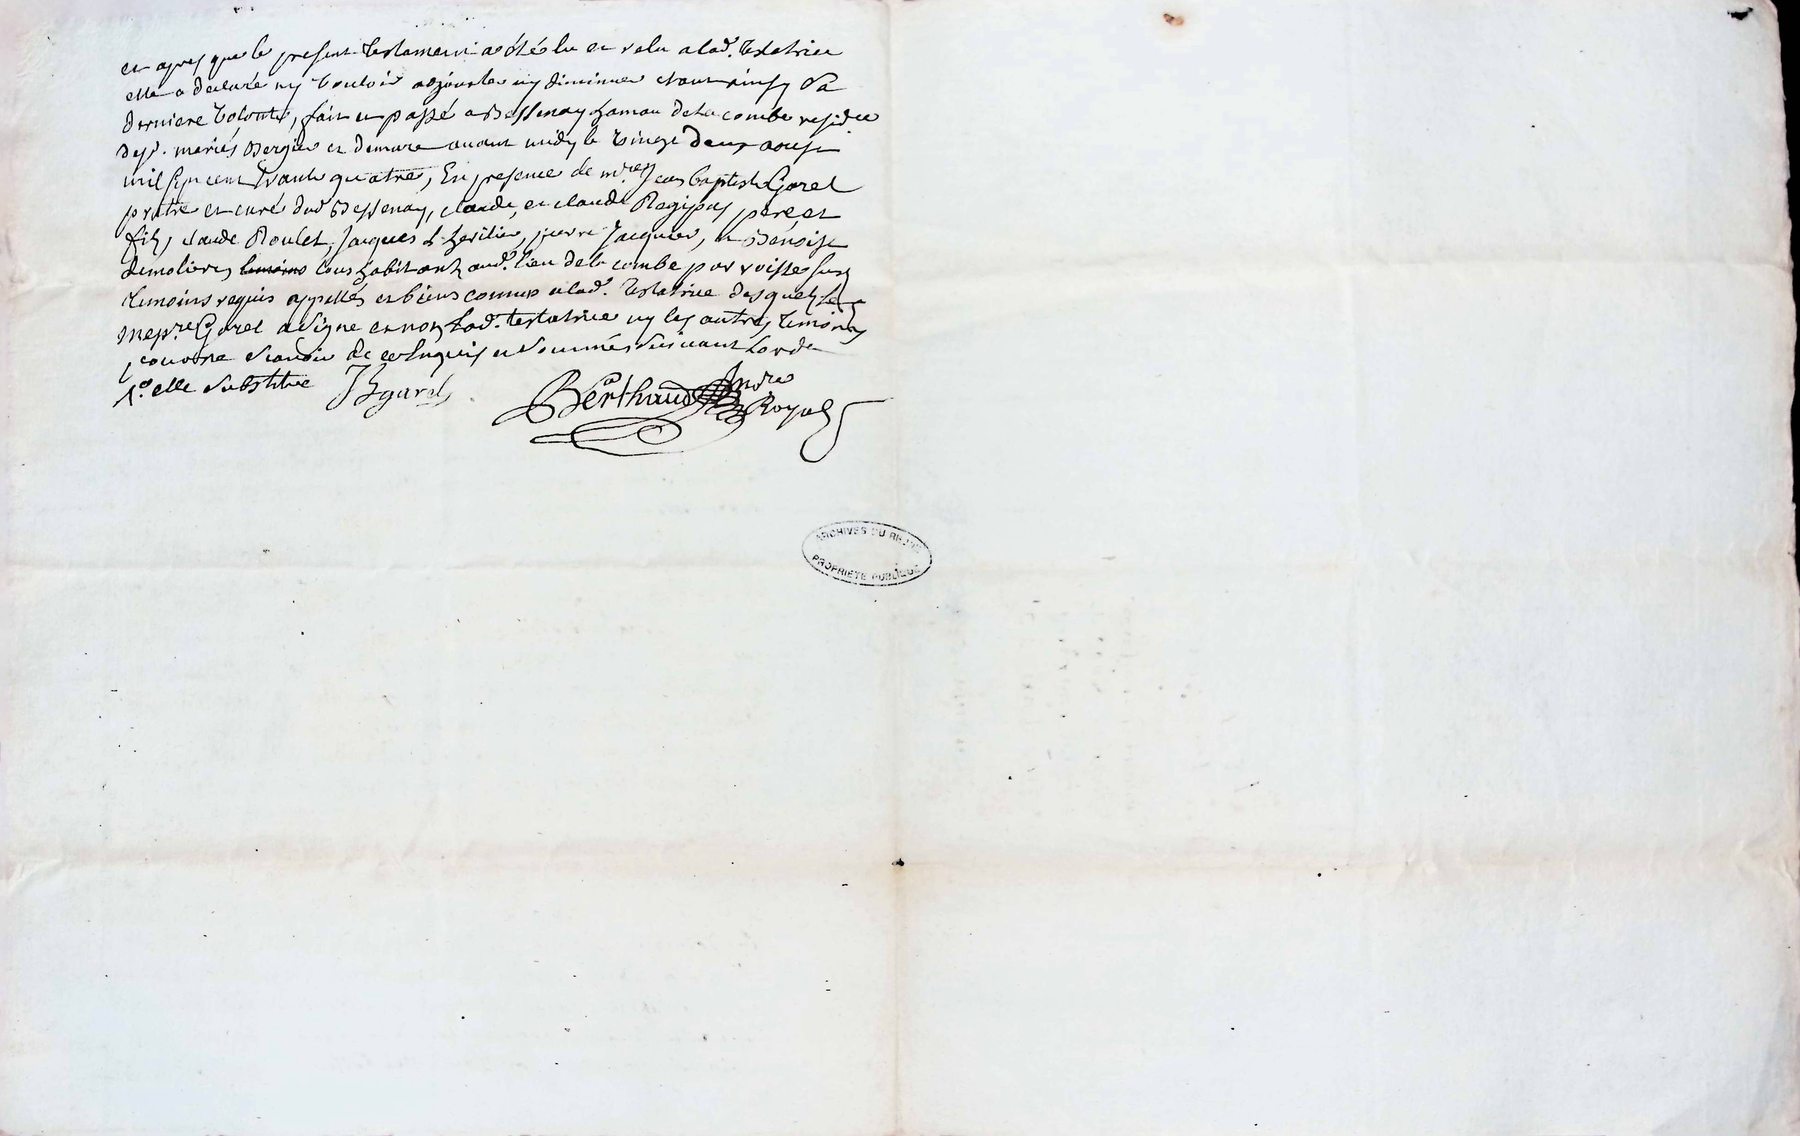 et apres que le present testament a été lu et relu a lad.e testatrice
elle a declaré ny vouloir adjouster ny diminuer etant ainsy sa
derniere volonté, fait et passé a Bessenay hamau de la combe residce
desd. mariés Bergier et demure avant midy le vingt deux aoust
mil sept cent trante quatre, En presence de mre Jean baptiste Garel
prêtre et curé dud Bessenay, claude, et claude Ragipas pere, et
fils, claude Roulet, Jacques L'heritier, pierre Jacquier, et Benoist
demolieres temoins tous habitants aud. lieu de la combe parroisse susd
temoins requis appellés et biens connus a lad. testatrice desquels le
me pre Garel a signé et non Lad. testatrice ny les autres temoins
pour ne scavoir de ce enquis et sommés suivant Lord
1.o elle substitue JB garel
Berthaud
Royal
ARCHIVES DU RHONE
PROPRIETE PUBLIQUE